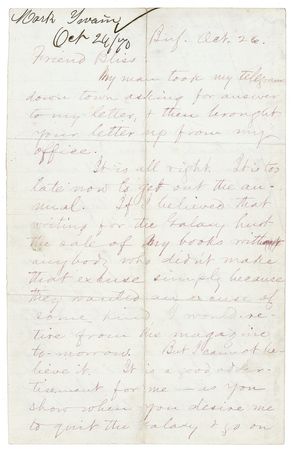 Mark Twain
Oct 26/70
Buf. Oct. 26.
Friend Bliss
My man took my telegram
down town asking for answer
to my letter, & then brought
your letter up from my
office.
It is all right. It is too
late now to get out the an-
nual. If I believed that
writing for the Galaxy hurt
the sale of my books without
anybody who didn't make
that excuse simply because
they wanted an excuse of
some kind, I would re-
tire from the magazine
to-morrow. But I cannot be-
lieve it. It is a good adver-
tisement for me — as you
show when you desire me
to quit the Galaxy & go on